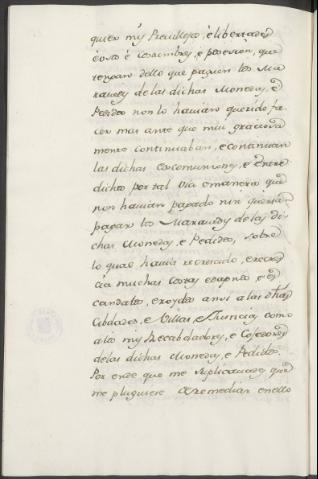 quier mis Previllejos, é libertades
é uso é costumbre, é posesion, que
tengan dello que paguen los Ma-
ravedis de las dichas Monedas, é
Pedidos non lo havian querido fa-
cer mas ante que mui graciosa-
mente continuaban, é continuan
las dichas Escomuniones, é Entre-
dichos por tal via é manera que
non havian pagado nin querian
pagar los Maravedis de las di-
chas Monedas, é Pedidos, sobre
lo qual havia recrecido, é recre-
cia muchas Cosas é dapnos, é Es-
candalos, é roydos ansi a las dhas
Cibdades, é Villas, é Juncias, como
a los mis Recabdadores, é Cojedores
de las dichas Monedas, é Pedidos.
Por ende que me suplicavades que
me pluguiese de remediar en ello